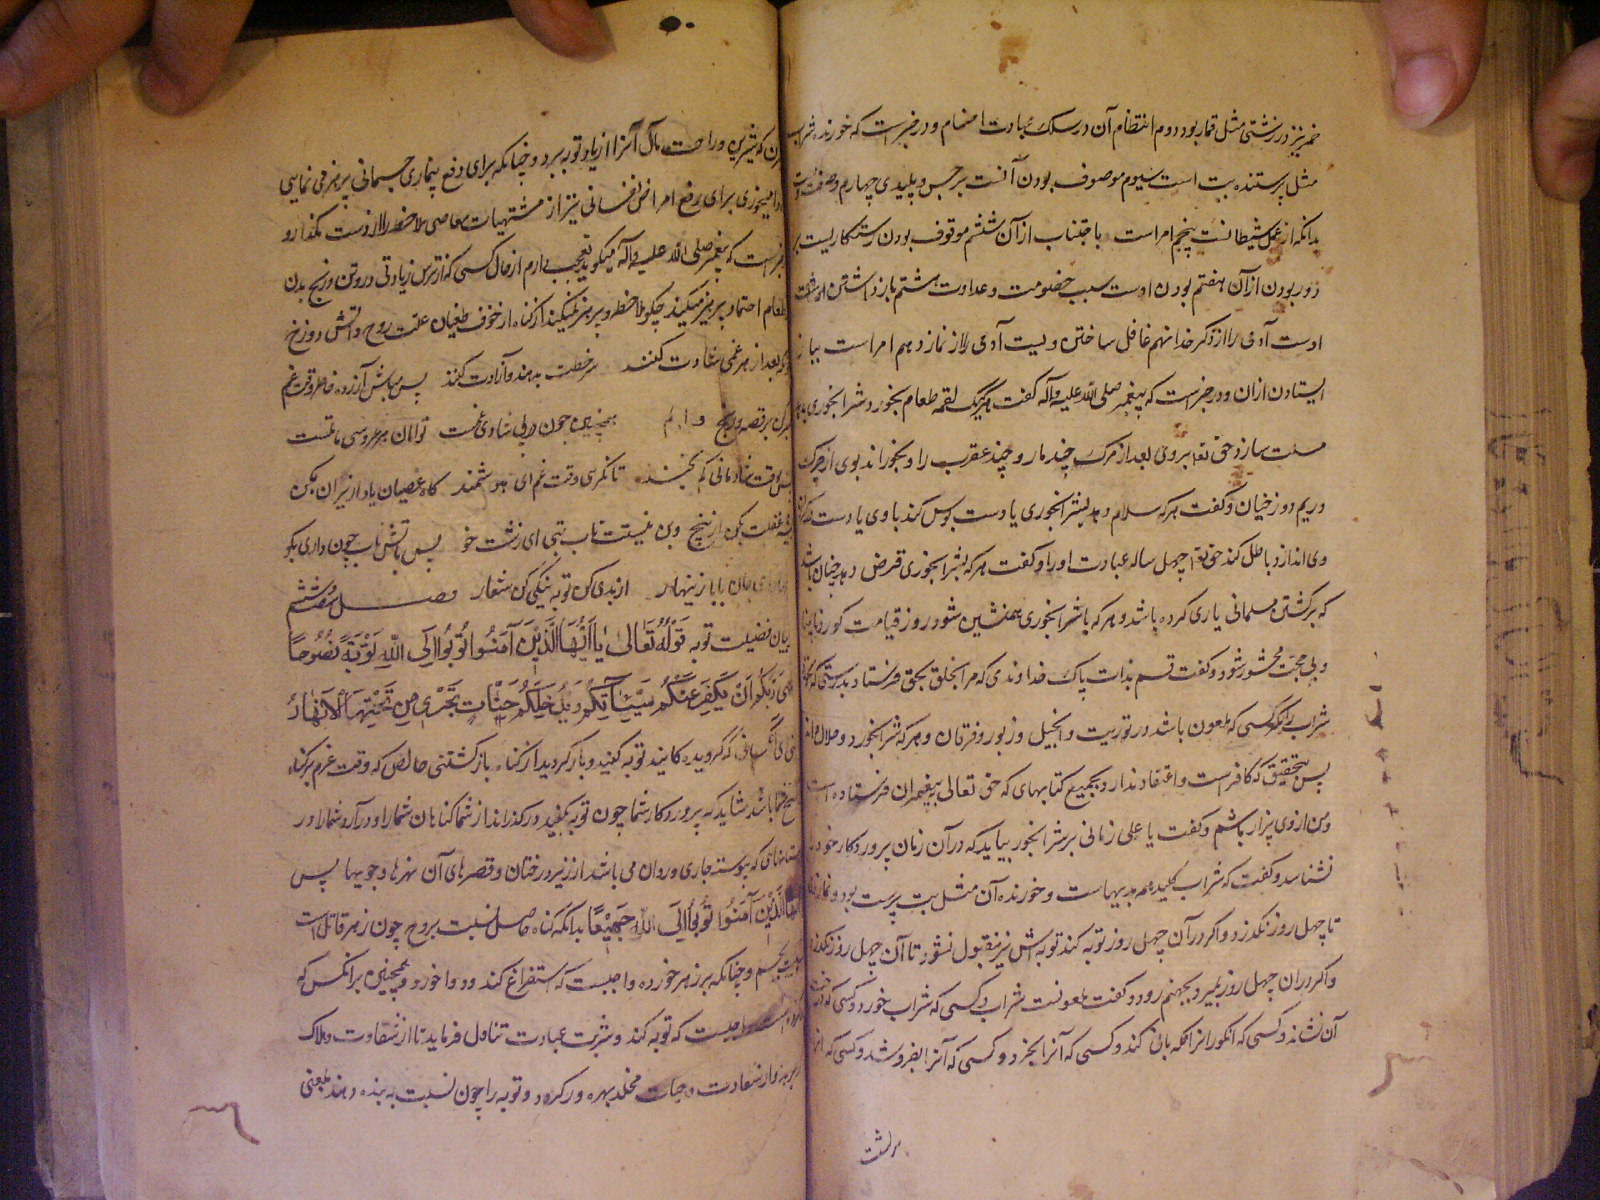 خمر نیز در زشتی مثل قمار بود دوم انتظام آن در سلک عبادت اصنام و در خبر است که خورنده شراب
مثل پرستنده بت است سیوم موصوف بودن آنست برجس و پلیدی چهارم
بدانکه از عمل شیطانست پنجم امر است باجتناب از آن ششم موقوف بودن رستکاریست بر
دور بودن از آن هفتم بودن اوست سبب خصومت و عداوت هشتم باز داشتن
اوست آدمی را از ذکر خدا نهم غافل ساختن ویست آدمی را از نماز دهم امر است بباز
ایستادن از ان و در خبر است که پیغمبر صلی الله علیه و آله گفت هرکه یک لقمه طعام بخورد شرابخوری بدهد
مسلط سازد حق تعا بروی بعد از مرک چند مار و چند عقرب را و بخورانند بوی از چرک
و ریم دوزخیان و گفت هرکه سلام دهد بشرابخوری یا دست بوس کند باوی یا دست
وی اندازد باطل کند حق تعا چهل ساله عبادت او را و گفت هرکه بشرابخوری قرض دهد چنان باشد
که بر کشتن مسلمانی یاری کرده باشد و هرکه با شرابخوری همنشین شود روز قیامت کور و نابینا
و بی حجت محشور شود و گفت قسم بذات پاک خداوندی که مرا بخلق بحق فرستاد بدرستی که نخورد
شراب مکر کسی که ملعون باشد در توریت و انجیل و زبور و فرقان و هرکه شرابخورد و حلال داند
پس بتحقیق که کافر است و اعتقاد ندارد بجمیع کتابهای که حق تعالی به پیغمبران فرستاده است
و من از وی بیزار باشم و گفت یا علی زمانی بر شرابخور بیاید که در آن زمان پروردکار خود را
نشناسد و گفت که شراب کلید همه بدیهاست و خورنده آن مثل بت پرست بود و نماز
تا چهل روز نکذرد و اکر در آن چهل روز توبه کند توبه اش نیز مقبول نشود تا آن چهل روز نکذرد
و اکر در ان چهل روز بمیرد بجهنم رود و گفت ملعونست شراب و کسی که شراب خورد و کسی که
آن نشاند و کسی که انکور انرا بانی کند و کسی که آنرا بخرد و کسی که آنرا بفروشد و کسی که
که شیرین و راحت مآل آنرا از یاد تو به برد و چنانکه برای دفع بیماری جسمانی پرهیز می نمایی
و دوا میخوری برای رفع امراض نفسانی نیز از مشتهیات معاصی ملاحظه را از دست مکذار و
خبر است که پیغمبر صلی الله علیه و آله میکوید تعجب دارم از حال کسی که از ترس زیادتی درد تن و رنج بدن
طعام احتما و پرهیز میکند چکونه ملاحظه و پرهیز نمیکند از کناه از خوف طغیان علت روح و آتش دوزخ
بعد از هر غمی شادت کنند سرخطت بدهند و آزادت کنند پس مباش آزرده خاطر وقت غم
همچنین چون در پی شادی غمست توامان هر عروسی ماتمست
وقت شادمانی کم بخند تا نکرسی وقت غم ای هوشمند کاه عصیان یاد از نیران بکن
غفلت بکن از بیخ و بن نیستت تاب تبی ای زشت خو پس باتش تاب چون داری بکو
جان بابا زینهار از بدی کن توبه نیکی کن شعار فصل ششم
بیان فضیلت توبه قوله تعالی یا ایها الذین آمنوا توبوا الی الله توبة نصوحا
عسی ربکم ان یکفر عنکم سیئاتکم ویدخلکم جنات تجری من تحتها الانهار
کرویده کانید توبه کنید و باز کردید از کناه باز کشتنی خالص که وقت عزم بر کناه
شاید که پروردکار شما چون توبه کنید درکذراند از شما کناهان شما را و در آرد شما را در
بوستانهای که پیوسته جاری و روان می باشد از زیر درختان و قصرهای آن نهرها و جویها پس
ایها الذین آمنوا توبوا الی الله جمیعا بدانکه کناه حاصل نسبت بروح چون زهر قاتل است
نسبت بجسم و چنانکه بر زهر خورده واجبست که استفراغ کند و دوا خورد و همچنین بر انکس که
واجبست که توبه کند و شربت عبادت تناول فرماید تا از شقاوت و هلاک
و از سعادت و حیات مخلد بهره ور کردد و توبه را چون نسبت به بنده دهند بمعنی